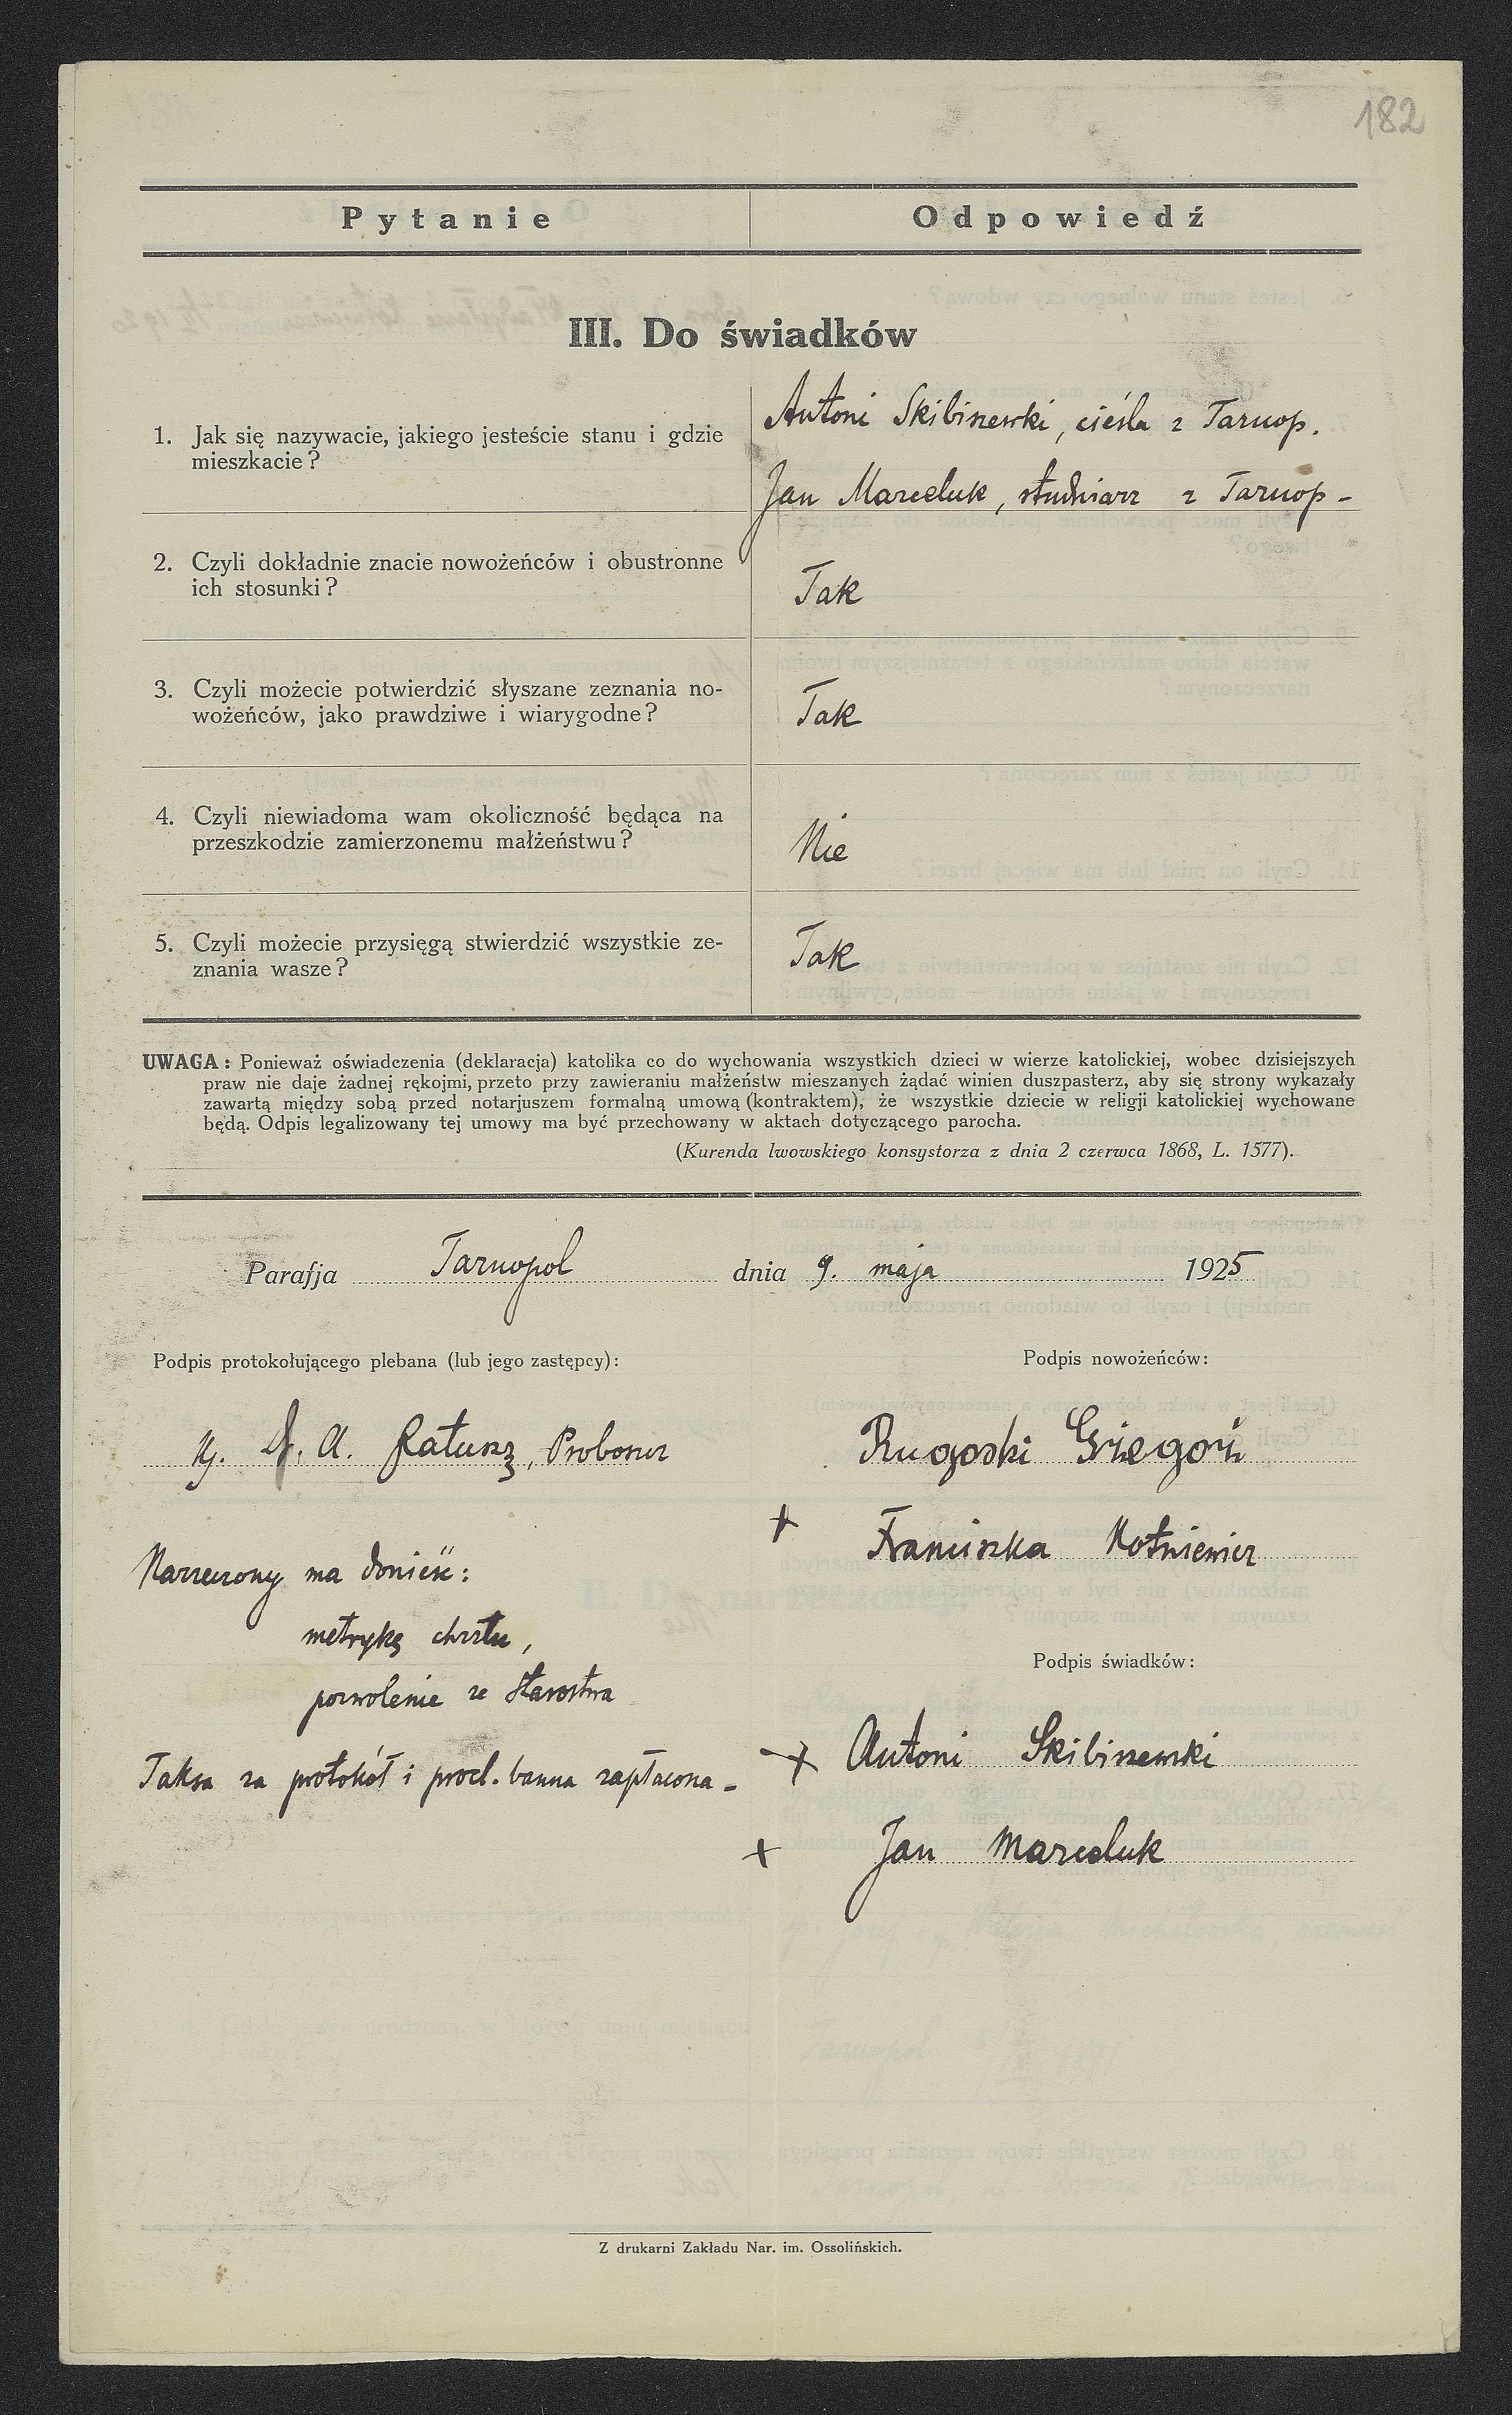 182
Pytanie
Odpowiedź
III. Do świadków
1. Jak się nazywacie, jakiego jesteście stanu i gdzie
mieszkacie?
Antoni Skibiszewski, cieśla z Tarnop.
Jan Marceluk, studniarz z Tarnop-
2. Czyli dokładnie znacie nowożeńców i obustronne
ich stosunki?
Tak
3. Czyli możecie potwierdzić słyszane zeznania no-
wożeńców, jako prawdziwe i wiarygodne?
Tak
4. Czyli niewiadoma wam okoliczność będąca na
przeszkodzie zamierzonemu małżeństwu?
Nie
5. Czyli możecie przysięgą stwierdzić wszystkie ze-
znania wasze?
Tak
UWAGA: Ponieważ oświadczenia (deklaracja) katolika co do wychowania wszystkich dzieci w wierze katolickiej, wobec dzisiejszych
praw nie daje żadnej rękojmi, przeto przy zawieraniu małżeństw mieszanych żądać winien duszpasterz, aby się strony wykazały
zawartą między sobą przed notarjuszem formalną umową (kontraktem), że wszystkie dziecie w religji katolickiej wychowane
będą. Odpis legalizowany tej umowy ma być przechowany w aktach dotyczącego parocha.
(Kurenda lwowskiego konsystorza z dnia 2 czerwca 1868, L. 1577).
Parafja Tarnopol dnia 9. maja 1925
Podpis protokołującego plebana (lub jego zastępcy):
Podpis nowożeńców:
A. Ratusz, Proboszcz
Rugoski Grzegorz
+ Franciszka Kotniewicz
Narzeczony ma donieść:
metrykę chrztu,
pozwolenie ze Starostwa
Podpis świadków:
Taksa za protokół i procl. banna zapłacona -
+ Antoni Skibiszewski
+ Jan Marceluk
Z drukarni Zakładu Nar. im. Ossolińskich.